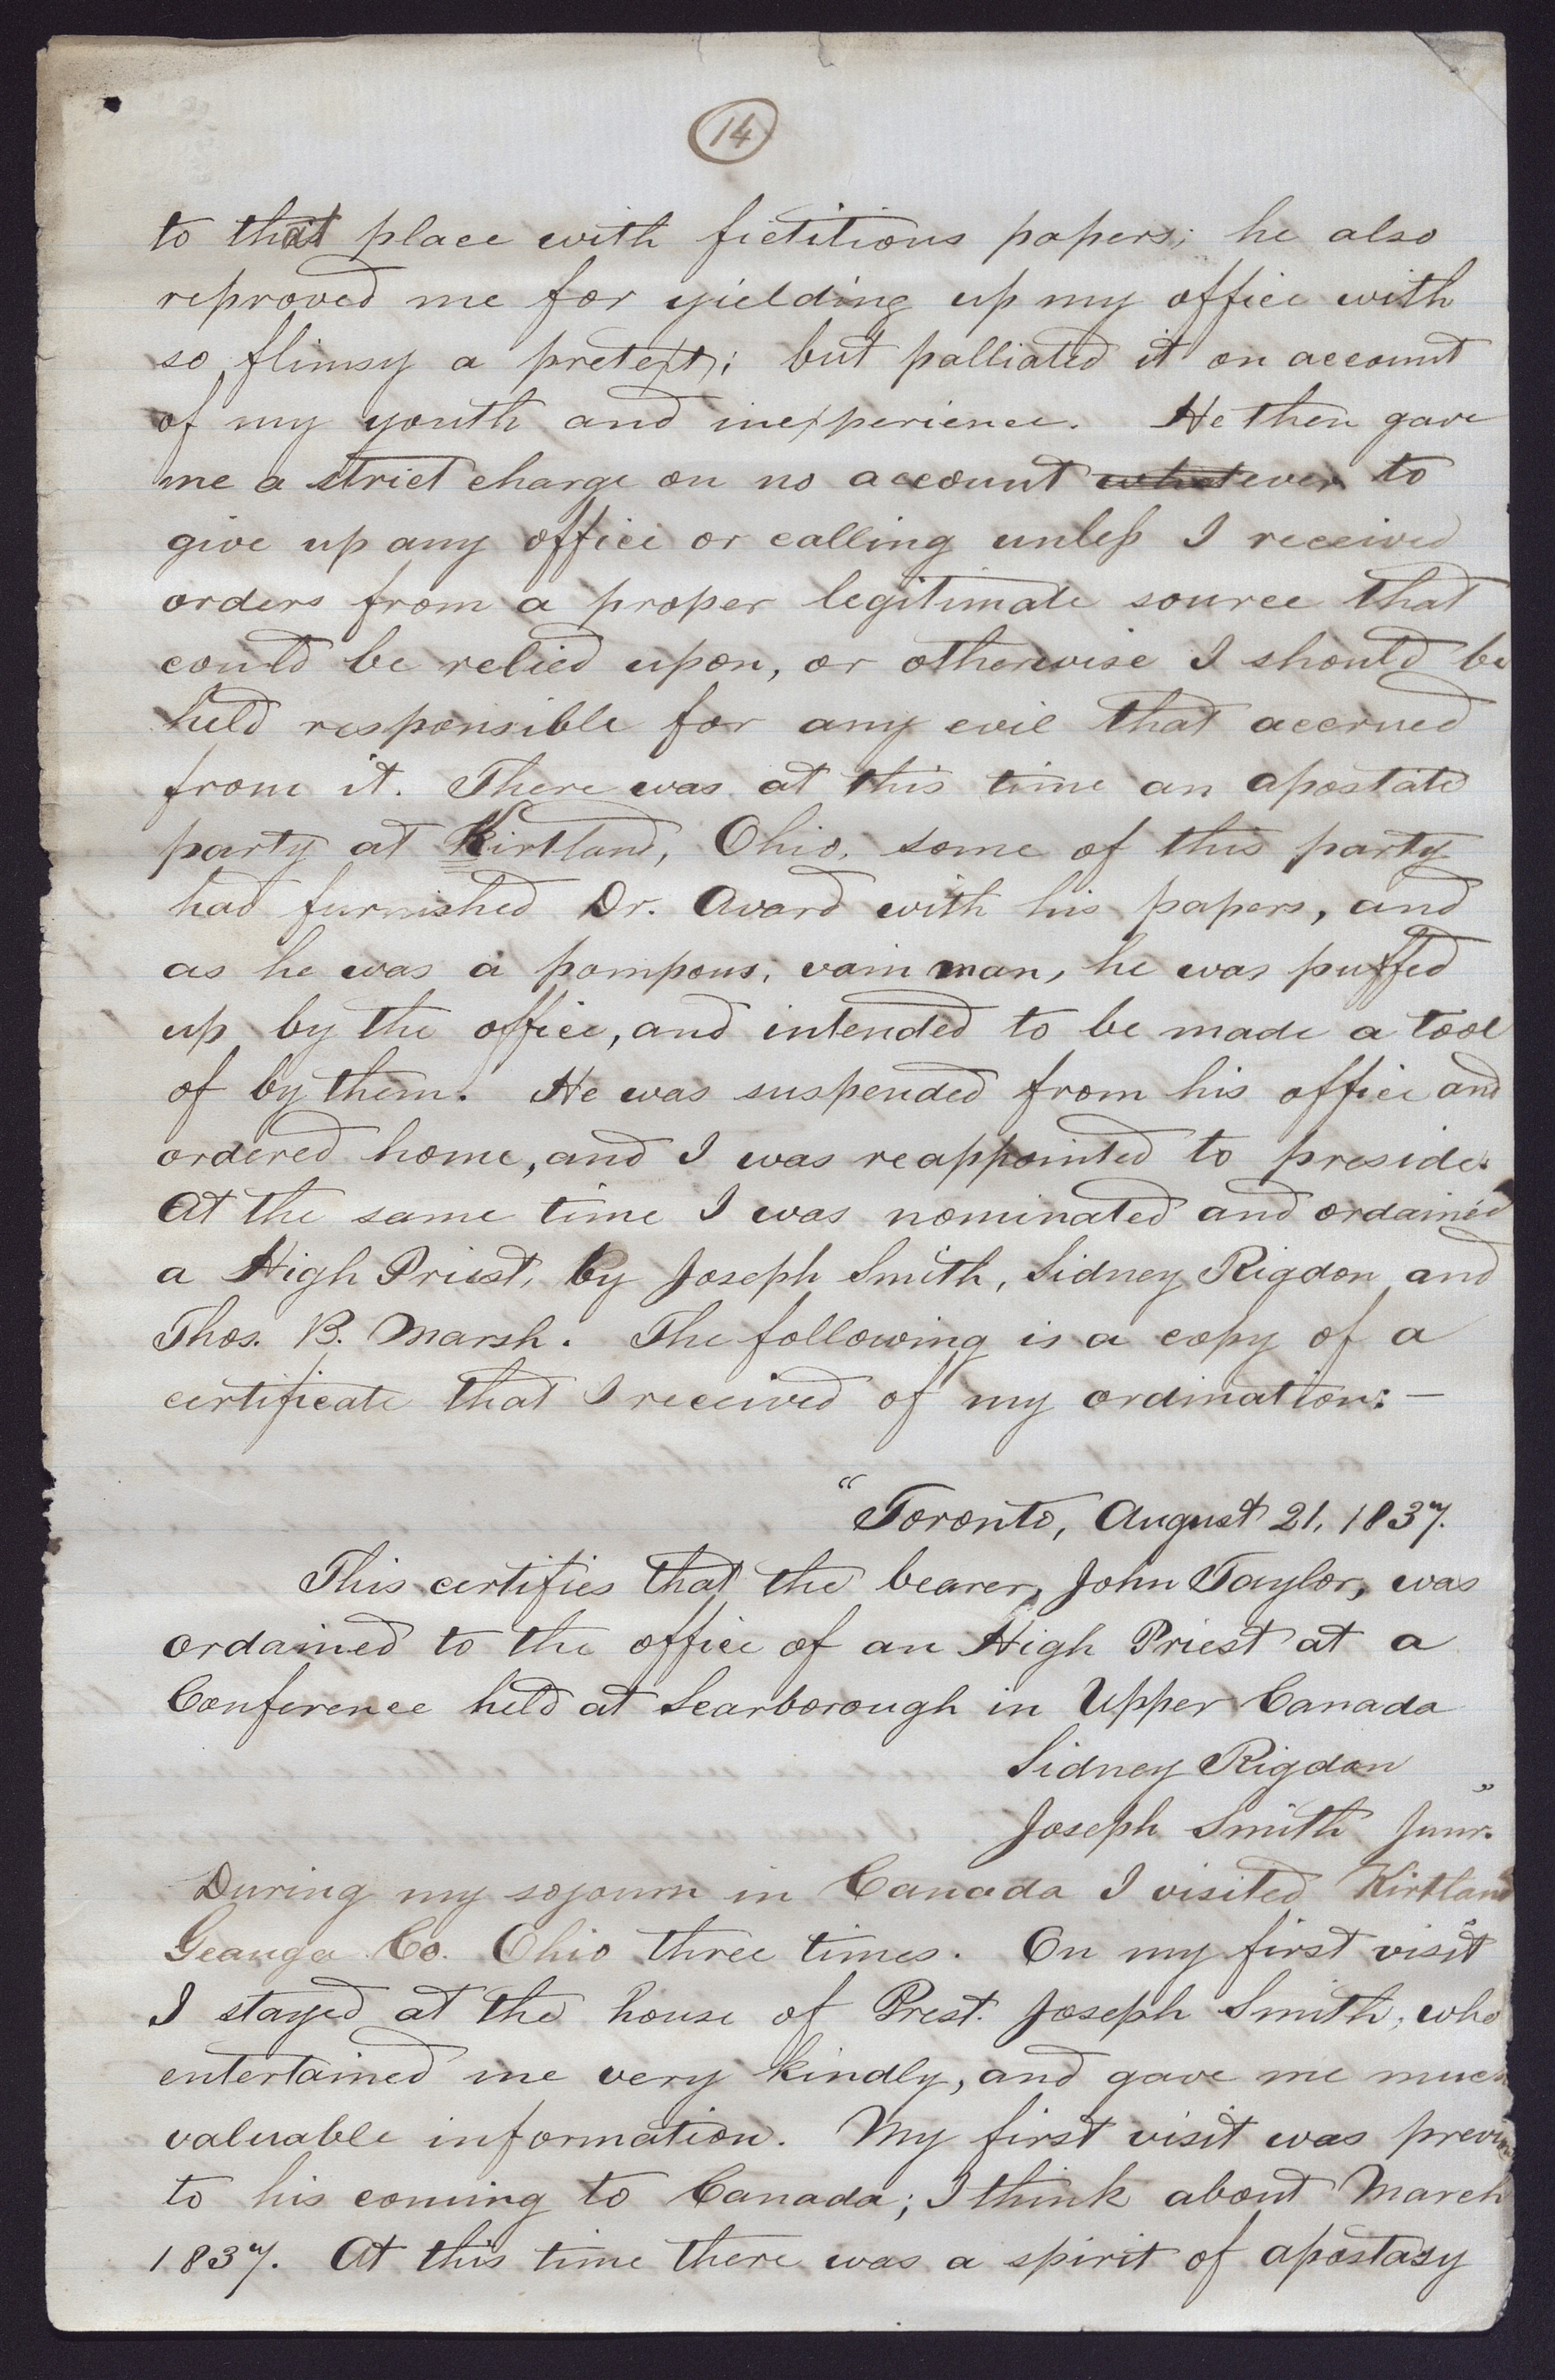 14
to that place with fictitious papers; he also
reproved me for yielding up my office with
so flimsy a pretext; but palliated it on account
of my youth and inexperience. He then gave
me a strict charge on no account whatever to
give up any office or calling unless I received
orders from a proper legitimate source that
could be relied upon, or otherwise I should be
held responsible for any evil that accrued
from it. There was at this time an apostate
party at Kirtland, Ohio, some of this party
had furnished Dr. Avard with his papers, and
as he was a pompous, vain man, he was puffed
up by the office, and intended to be made a tool
of by them. He was suspended from his office and
ordered home, and I was reappointed to preside.
At the same time I was nominated and ordained
a High Priest, by Joseph Smith, Sidney Rigdon and
Thos. B. Marsh. The following is a copy of a
certificate that I received of my ordination:—
"Toronto, August 21, 1837.
This certifies that the bearer, John Taylor, was
ordained to the office of an High Priest at a
Conference held at Scarborough in Upper Canada
Sidney Rigdon
Joseph Smith Junr."
During my sojourn in Canada I visited Kirtland
Geauga Co. Ohio three times. On my first visit
I stayed at the house of Prest. Joseph Smith, who
entertained me very kindly, and gave me much
valuable information. My first visit was previous
to his coming to Canada; I think about March
1837. At this time there was a spirit of apostasy